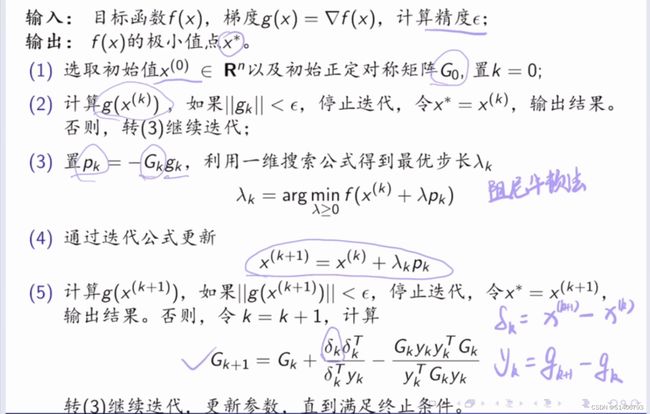 输入: 目标函数f(x), 梯度g(x) = ∇f(x), 计算精度ϵ;
输出: f(x)的极小值点x*。
(1) 选取初始值x^(0) ∈ R^n以及初始正定对称矩阵G_0, 置k = 0;
(2) 计算g(x^(k)), 如果||g_k|| < ϵ, 停止迭代, 令x* = x^(k), 输出结果。
否则, 转(3)继续迭代;
(3) 置p_k = −G_k g_k, 利用一维搜索公式得到最优步长λ_k
λ_k = arg min_{λ≥0} f(x^(k) + λp_k)
阻尼牛顿法
(4) 通过迭代公式更新
x^(k+1) = x^(k) + λ_k p_k
(5) 计算g(x^(k+1)), 如果||g(x^(k+1))|| < ϵ, 停止迭代, 令x* = x^(k+1),
输出结果。否则, 令 k = k + 1, 计算
δ_k = x^(k+1) − x^(k)
G_{k+1} = G_k + δ_k δ_k^T / δ_k^T y_k − G_k y_k y_k^T G_k / y_k^T G_k y_k
y_k = g_{k+1} − g_k
转(3)继续迭代, 更新参数, 直到满足终止条件。